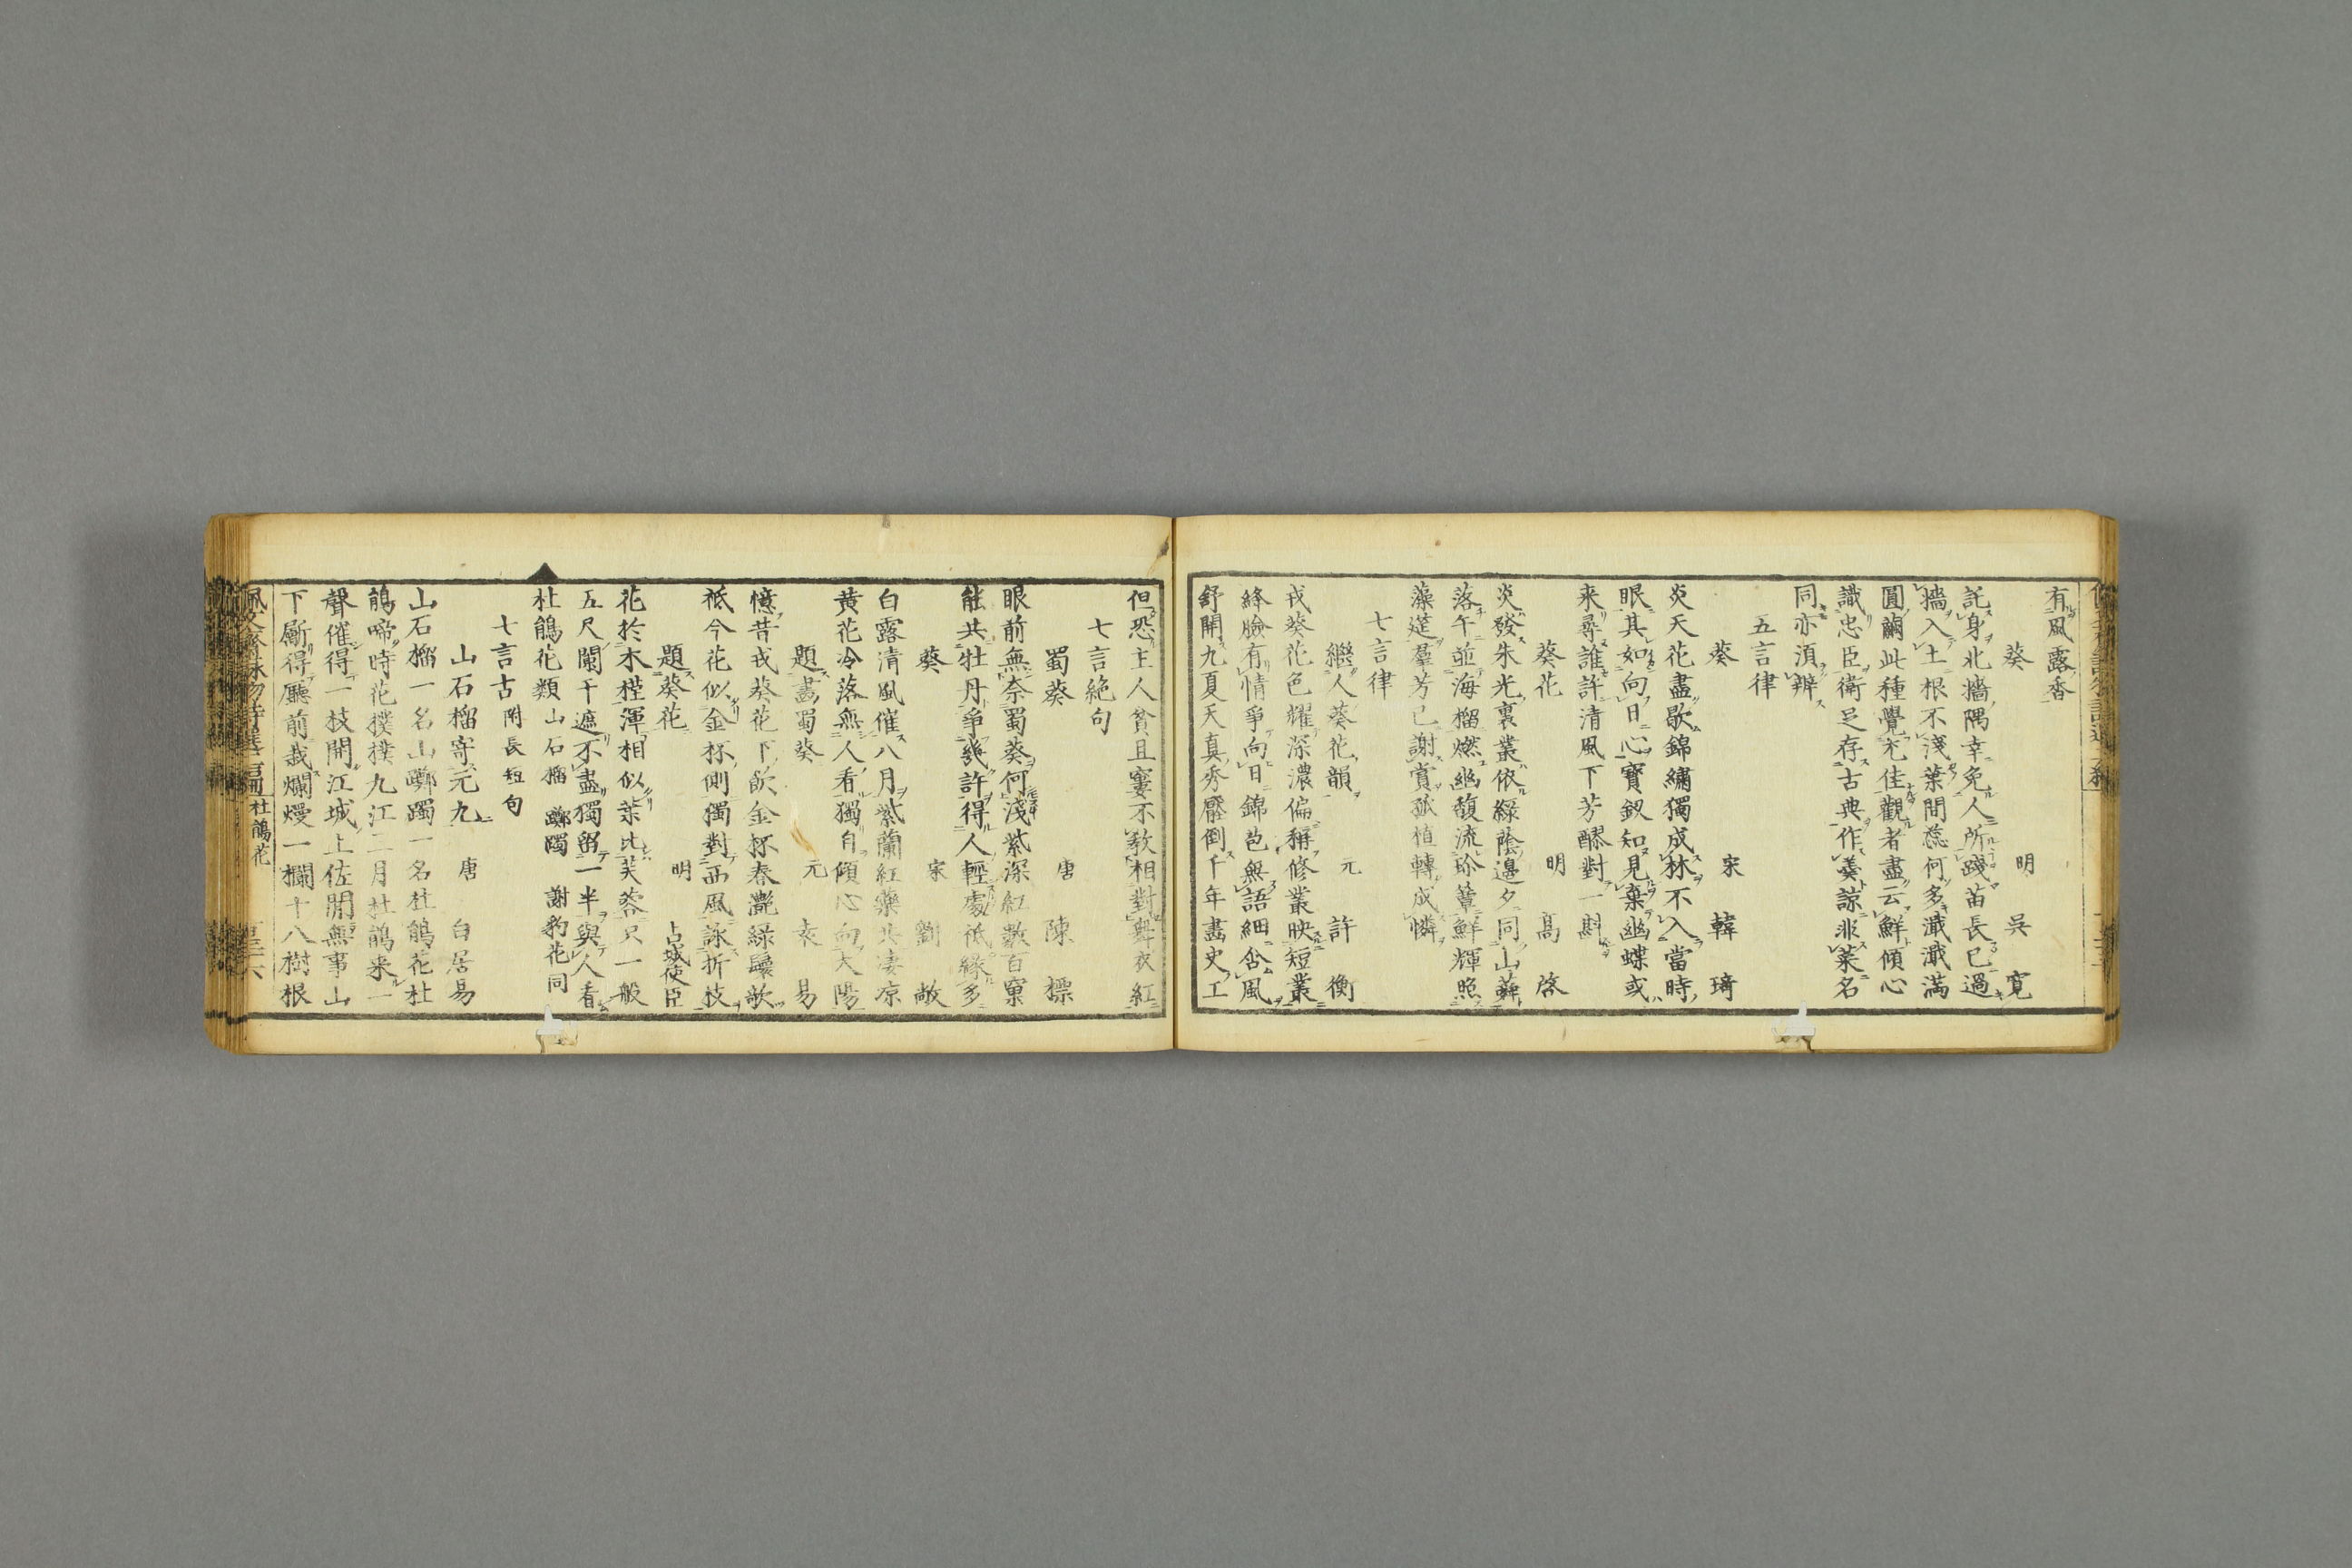 有風露香
葵 明 吳 寬
託身北牆隅幸免人所踐苗長已過
牆入土根不淺葉間蕊何多濈濈滿
圓繭此種覺充佳觀者盡云鮮傾心
識忠臣衛足存古典作羹諒非菜名
同亦須辨
五言律
葵 宋 韓 琦
炎天花盡歇錦繡獨成林不入當時
眼其如向日心寶釵知見棄幽蝶或
来尋誰許清風下芳醪對一斟
葵花 明 高 啓
炎發朱光裏叢依緑蔭邊夕同山蕣
落午並海榴燃幽馥流珍簟鮮輝照
藻筵羣芳已謝賞孤植轉成憐
七言律
繼人葵花韻 元 許 衡
戎葵花色耀深濃偏稱修叢映短叢
絳臉有情爭向日錦苞無語細含風
舒開九夏天真秀壓倒千年畫史工
但恐主人貧且窶不教相對舞衣紅
七言絶句
蜀葵 唐 陳 標
眼前無奈蜀葵何淺紫深紅數百窠
能共牡丹爭幾許得人輕處秪緣多
葵 宋 劉 敞
白露清風催八月紫蘭紅藥共凄凉
黄花冷落無人看獨自傾心向太陽
題畫蜀葵 元 袁 易
憶昔戎葵花下飲金杯春灔緑鬟歌
秪今花似金杯側獨對西風詠折枝
題葵花 明 占城使臣
花於木槿渾相似葉比芙蓉只一般
五尺闌干遮不盡獨留一半與人看
杜鵑花類 山石榴 躑躅 謝豹花同
七言古 附長短句
山石榴寄元九 唐 白居易
山石榴一名山躑躅一名杜鵑花杜
鵑啼時花撲撲九江二月杜鵑来一
聲催得一枝開江城上佐閒無事山
下斸得廳前栽爛熳一欄十八樹根
杜鵑花